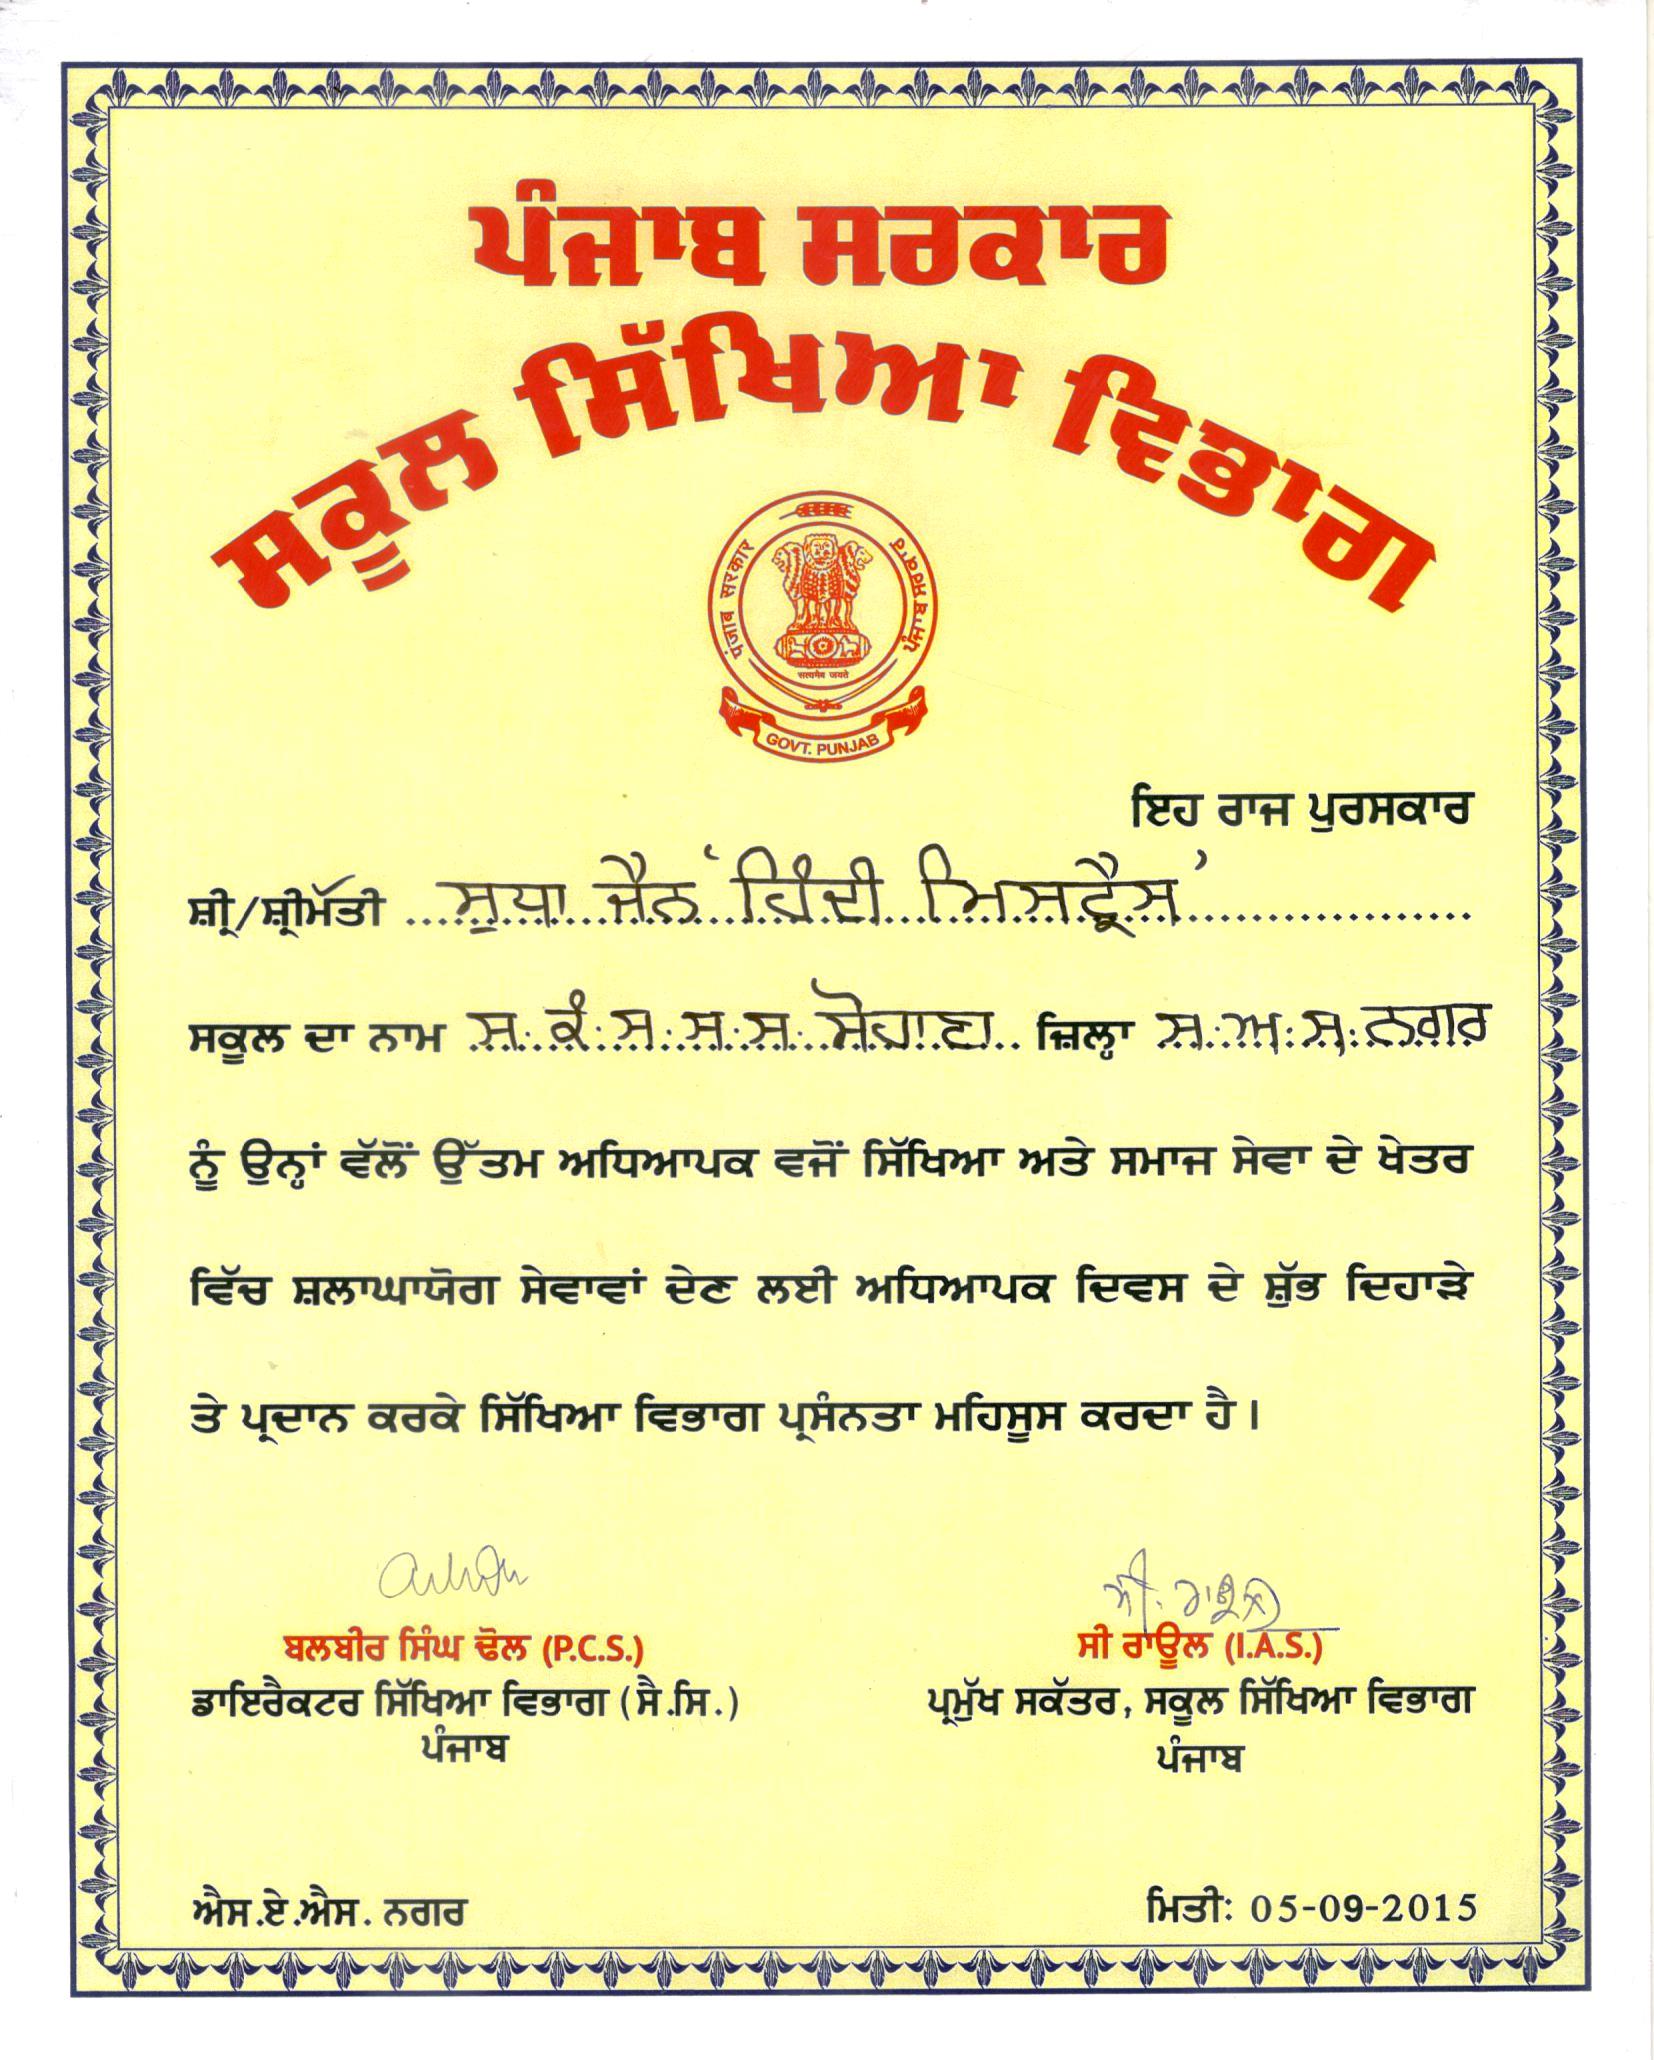 ਪੰਜਾਬ ਸਰਕਾਰ
ਸਕੂਲ ਸਿੱਖਿਆ ਵਿਭਾਗ
पंजाब सरकार
ਪੰਜਾਬ ਸਰਕਾਰ
सत्यमेव जयते
GOVT. PUNJAB
ਇਹ ਰਾਜ ਪੁਰਸਕਾਰ
ਸ਼੍ਰੀ/ਸ਼੍ਰੀਮੱਤੀ ਸੁਧਾ ਜੈਨ ‘ਹਿੰਦੀ ਮਿਸਟ੍ਰੈਸ’
ਸਕੂਲ ਦਾ ਨਾਮ ਸ. ਕੰ. ਸ. ਸ. ਸ. ਸੋਹਾਣਾ ਜ਼ਿਲ੍ਹਾ ਸ. ਅ. ਸ. ਨਗਰ
ਨੂੰ ਉਨ੍ਹਾਂ ਵੱਲੋਂ ਉੱਤਮ ਅਧਿਆਪਕ ਵਜੋਂ ਸਿੱਖਿਆ ਅਤੇ ਸਮਾਜ ਸੇਵਾ ਦੇ ਖੇਤਰ
ਵਿੱਚ ਸ਼ਲਾਘਾਯੋਗ ਸੇਵਾਵਾਂ ਦੇਣ ਲਈ ਅਧਿਆਪਕ ਦਿਵਸ ਦੇ ਸ਼ੁੱਭ ਦਿਹਾੜੇ
ਤੇ ਪ੍ਰਦਾਨ ਕਰਕੇ ਸਿੱਖਿਆ ਵਿਭਾਗ ਪ੍ਰਸੰਨਤਾ ਮਹਿਸੂਸ ਕਰਦਾ ਹੈ।
ਸੀ. ਰਾਊਲ
ਬਲਬੀਰ ਸਿੰਘ ਢੋਲ (P.C.S.)
ਸੀ ਰਾਊਲ (I.A.S.)
ਡਾਇਰੈਕਟਰ ਸਿੱਖਿਆ ਵਿਭਾਗ (ਸੈ.ਸਿ.)
ਪ੍ਰਮੁੱਖ ਸਕੱਤਰ, ਸਕੂਲ ਸਿੱਖਿਆ ਵਿਭਾਗ
ਪੰਜਾਬ
ਪੰਜਾਬ
ਐਸ.ਏ.ਐਸ. ਨਗਰ
ਮਿਤੀ: 05-09-2015